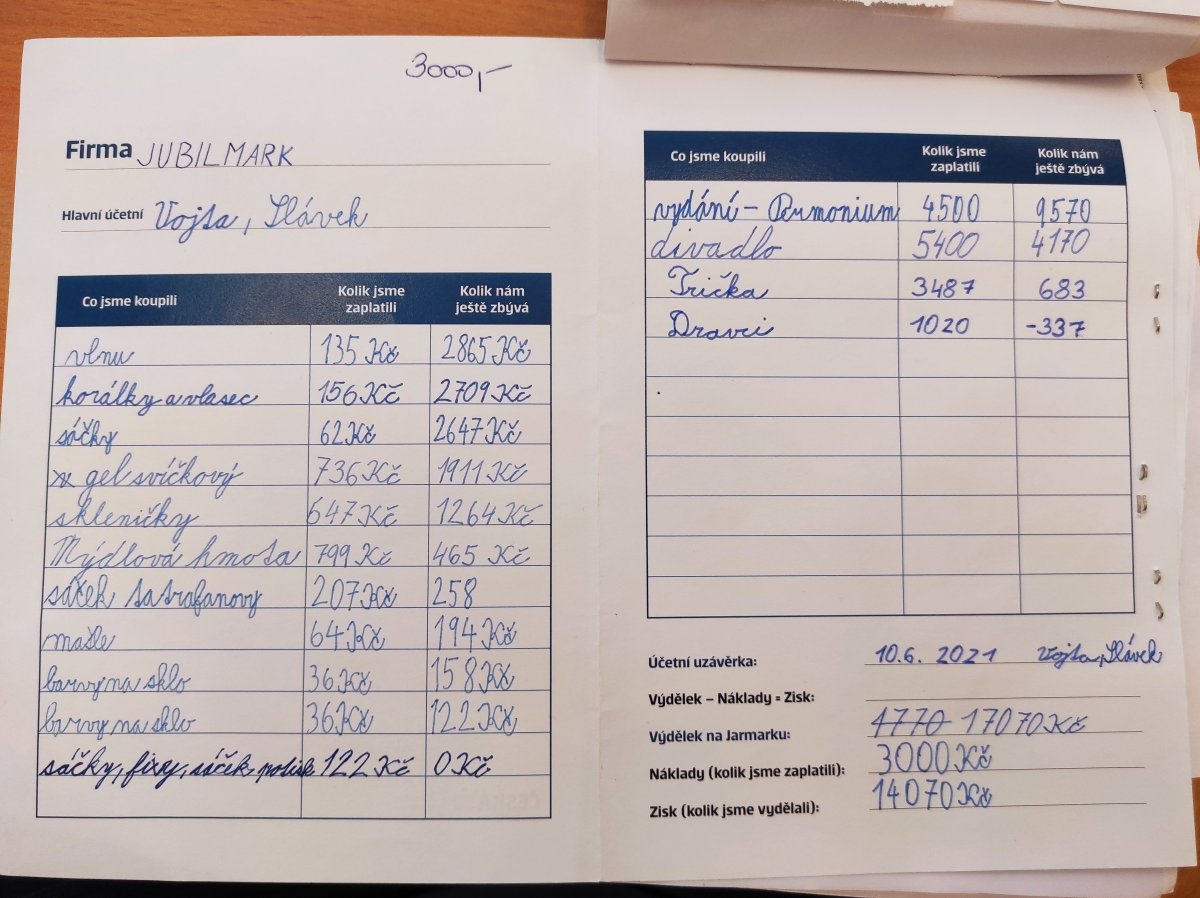 3000,-
Firma JUBILMARK
Hlavní účetní Vojta, Slávek
Co jsme koupili Kolik jsme zaplatili Kolik nám ještě zbývá
vlnu 135 Kč 2865 Kč
korálky a vlasec 156 Kč 2709 Kč
sáčky 62 Kč 2647 Kč
gel svíčkový 736 Kč 1911 Kč
skleničky 647 Kč 1264 Kč
Mýdlová hmota 799 Kč 465 Kč
sáček satrafanovy 207 Kč 258
mašle 64 Kč 194 Kč
barvy na sklo 36 Kč 158 Kč
barvy na sklo 36 Kč 122 Kč
sáčky, fixy, sáček potisk 122 Kč 0 Kč
Co jsme koupili Kolik jsme zaplatili Kolik nám ještě zbývá
vydání - Permonium 4500 9570
divadlo 5400 4170
Trička 3487 683
Dravci 1020 -337
Účetní uzávěrka: 10.6. 2021 Vojta, Slávek
Výdělek – Náklady = Zisk:
Výdělek na Jarmarku: 1770 17070 Kč
Náklady (kolik jsme zaplatili): 3000 Kč
Zisk (kolik jsme vydělali): 14070 Kč